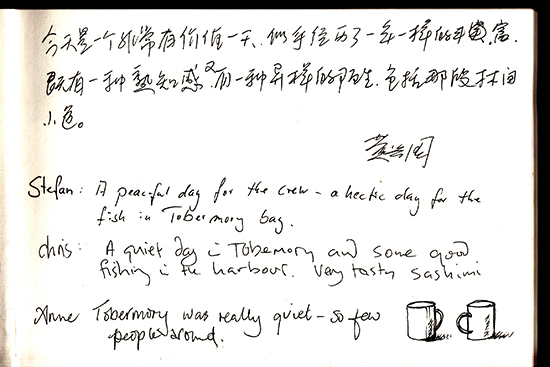 今天是一个非常有价值一天.似乎经历了一年一样的丰富.
既有一种熟知感又有一种异样的陌生.包括那段林间
小道。
Stefan: A peaceful day for the crew – a hectic day for the
fish in Tobermory bay.
Chris: A quiet day in Tobermory and some good
fishing in the harbour. Very tasty sashimi
Anne Tobermory was really quiet – so few
people around.